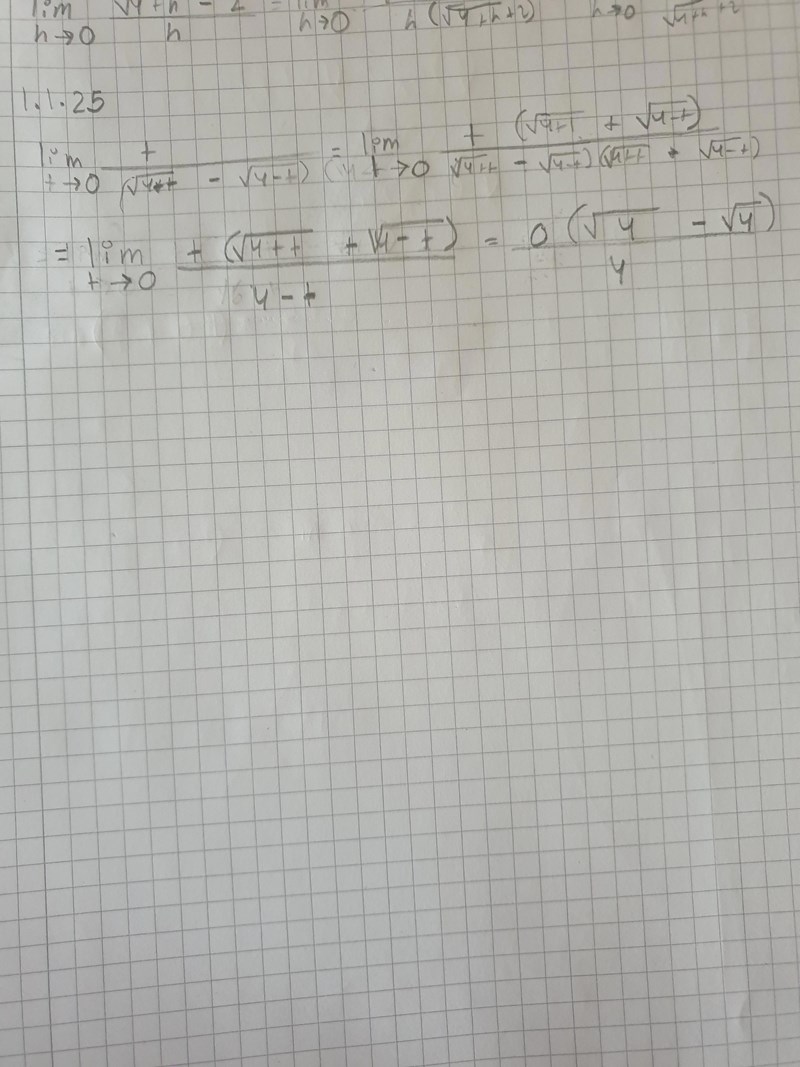 lim h→0 √4+h - 2 / h = lim h→0 h(√4+h+2) h→0 √4+h+2
1.1.25
lim t→0 t / (√4+t - √4-t) = lim t→0 t (√4+t + √4-t) / √4+t - √4-t)(√4+t + √4-t)
= lim t→0 t (√4+t + √4-t) / 4-t = 0 (√4 - √4) / 4